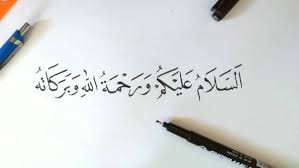 اَلسَّلَامُ عَلَيْكُمْ وَرَحْمَةُ اللهِ وَبَرَكَاتُهُ